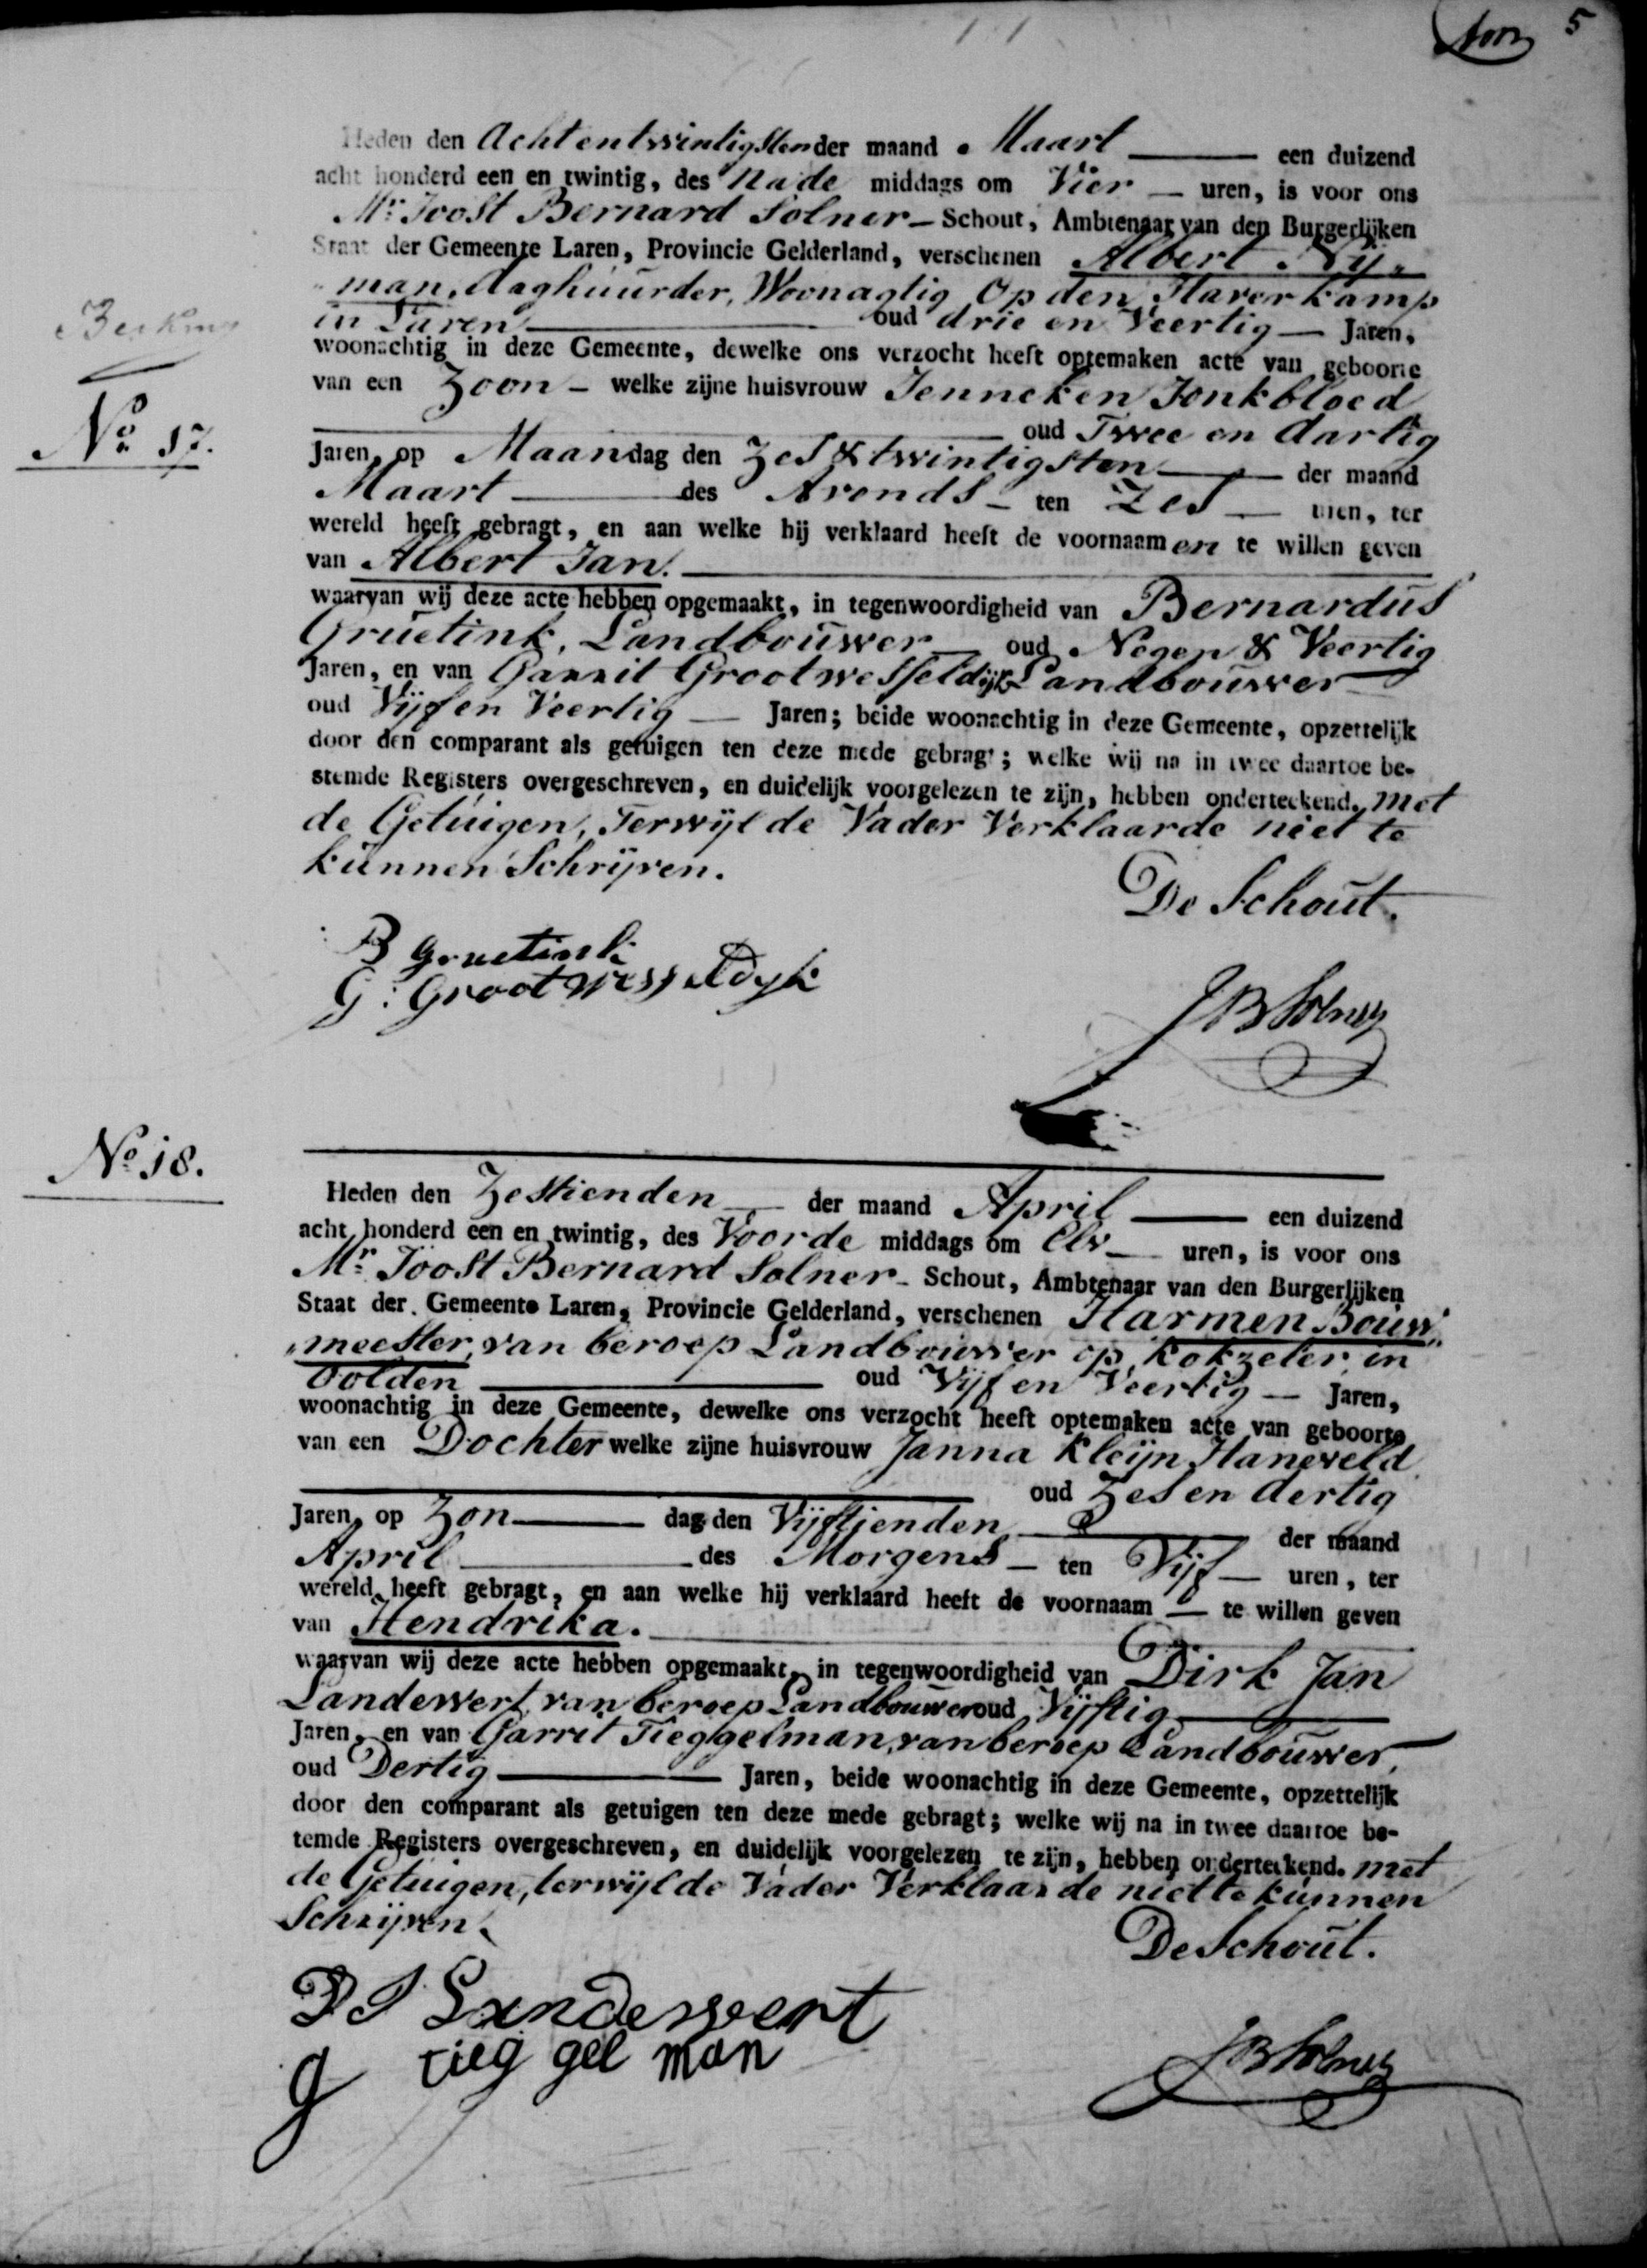 5
Heden den Achtentwintigsten der maand Maart een duizend
acht honderd een en twintig, des Nade middags om Vier uren, is voor ons
Mr. Joost Bernard Solner Schout, Ambtenaar van den Burgerlijken
Staat der Gemeente Laren, Provincie Gelderland, verschenen Albert Nij-
"man, daghuurder, Woonagtig Op den Haverkamp
in Laren oud drie en Veertig Jaren,
woonachtig in deze Gemeente, dewelke ons verzocht heeft optemaken acte van geboorte
van een Zoon welke zijne huisvrouw Jenneken Jonkbloed
No 17.
oud Twee en dartig
Jaren, op Maandag den Zes & twintigsten der maand
Maart des Avonds ten Zes uren, ter
wereld heeft gebragt, en aan welke hij verklaard heeft de voornaamen te willen geven
van Albert Jan.
waarvan wij deze acte hebben opgemaakt, in tegenwoordigheid van Bernardus
Gruetink, Landbouwer oud Negen & Veertig
Jaren, en van Garrit Grootwesseldijk Landbouwer
oud Vijf en Veertig Jaren; beide woonachtig in deze Gemeente, opzettelijk
door den comparant als getuigen ten deze mede gebragt; welke wij na in twee daartoe be-
stemde Registers overgeschreven, en duidelijk voorgelezen te zijn, hebben onderteekend. met
de Getuigen, Terwijl de Vader Verklaarde niet te
kunnen Schrijven.
De Schout.
B Gruetink
G: Grootwesseldyk
JB Solner
No 18.
Heden den Zestienden der maand April een duizend
acht honderd een en twintig, des Voorde middags om Elv uren, is voor ons
Mr. Joost Bernard Solner Schout, Ambtenaar van den Burgerlijken
Staat der Gemeente Laren, Provincie Gelderland, verschenen Harmen Bouw"
"meester, van beroep Landbouwer op Kokzeler in
Oolden oud Vijf en Veertig Jaren,
woonachtig in deze Gemeente, dewelke ons verzocht heeft optemaken acte van geboorte
van een Dochter welke zijne huisvrouw Janna Kleijn Haneveld
oud Zes en dertig
Jaren, op Zon dag den Vijftienden der maand
April des Morgens ten Vijf uren, ter
wereld heeft gebragt, en aan welke hij verklaard heeft de voornaam te willen geven
van Hendrika.
waarvan wij deze acte hebben opgemaakt, in tegenwoordigheid van Dirk Jan
Landewert, van beroep Landbouwer oud Vijftig
Jaren, en van Garrit Tieggelman, van beroep Landbouwer,
oud Dertig Jaren, beide woonachtig in deze Gemeente, opzettelijk
door den comparant als getuigen ten deze mede gebragt; welke wij na in twee daartoe be-
temde Registers overgeschreven, en duidelijk voorgelezen te zijn, hebben onderteekend. met
de Getuigen, terwijl de Vader Verklaarde niet te kunnen
Schrijven.
De Schout.
D J Landeweert
g tieg gel man
JB Solner